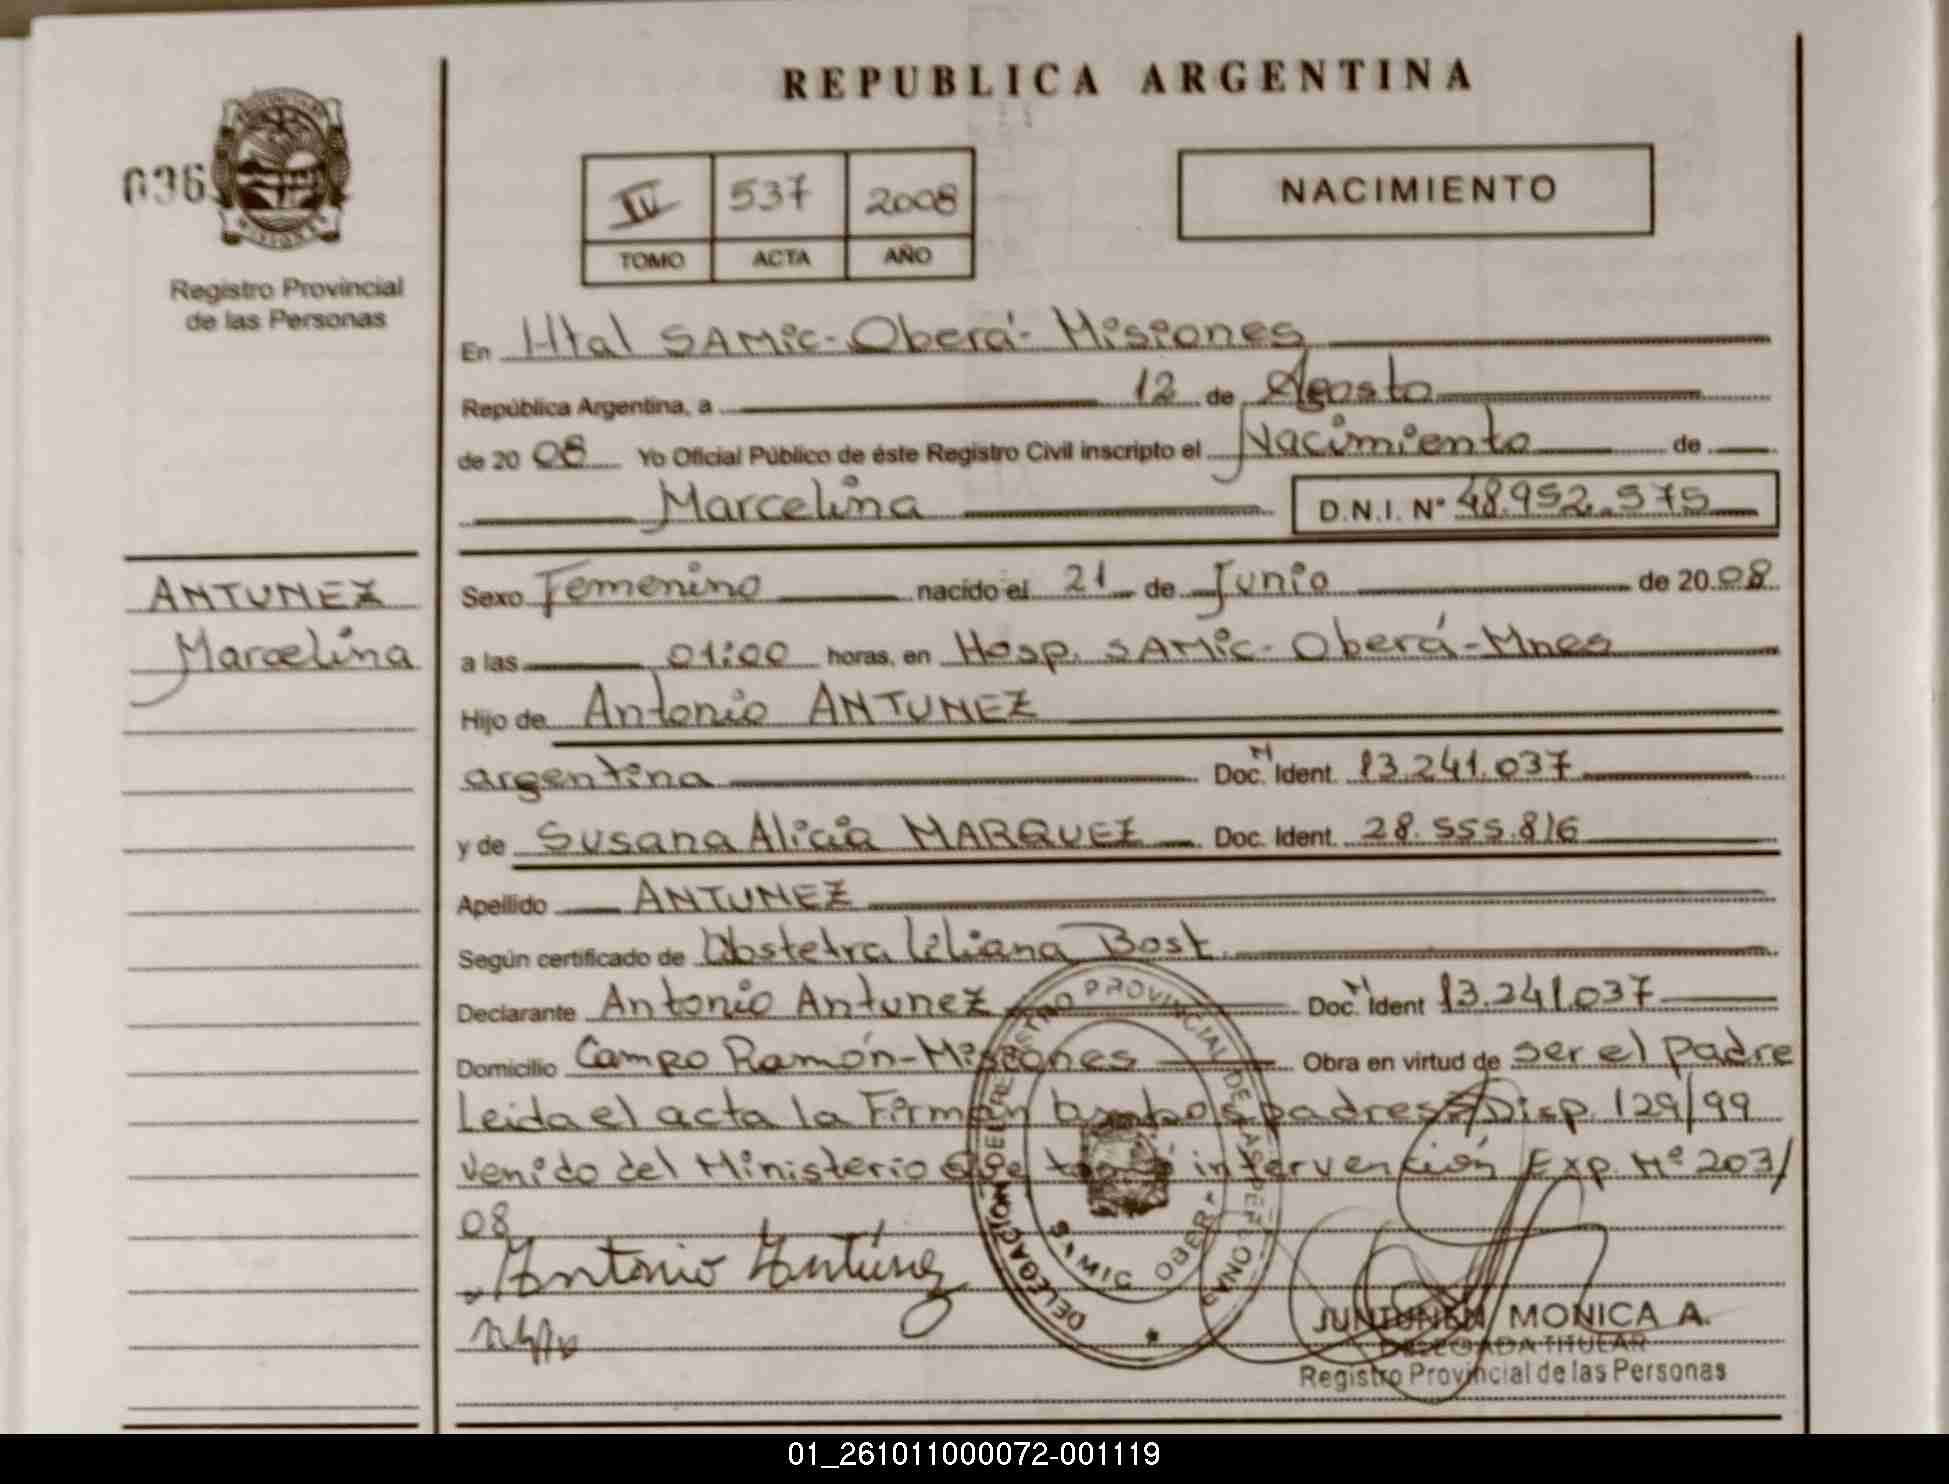 REPUBLICA ARGENTINA
036
MISIONES
Registro Provincial
de las Personas
IV 537 2008
TOMO ACTA AÑO
NACIMIENTO
En Htal SAMic-Oberá-Misiones
República Argentina, a 12 de Agosto
de 2008 Yo Oficial Público de éste Registro Civil inscripto el Nacimiento de
Marcelina D.N.I. Nº 48.952.575
ANTUNEZ
Marcelina
Sexo Femenino nacido el 21 de Junio de 2008
a las 01:00 horas, en Hosp. SAMic-Oberá-Mnes
Hijo de Antonio ANTUNEZ
argentina Doc. N Ident. 13.241.037
y de Susana Alicia MARQUEZ Doc. Ident. 28.555.816
Apellido ANTUNEZ
Según certificado de Obstetra Liliana Bost.
Declarante Antonio Antunez Doc. N Ident 13.241.037
Domicilio Campo Ramón-Misiones Obra en virtud de ser el padre
Leida el acta la Firman ambos padres Disp. 129/99
venido del Ministerio que intervención Exp. Nº 203/
08
Antonio Antúnez
DELEGACION DEL REGISTRO PROVINCIAL DE LAS PERSONAS
SAMIC OBERA
JUNTUNEN MONICA A.
DELEGADA TITULAR
Registro Provincial de las Personas
01_261011000072-001119